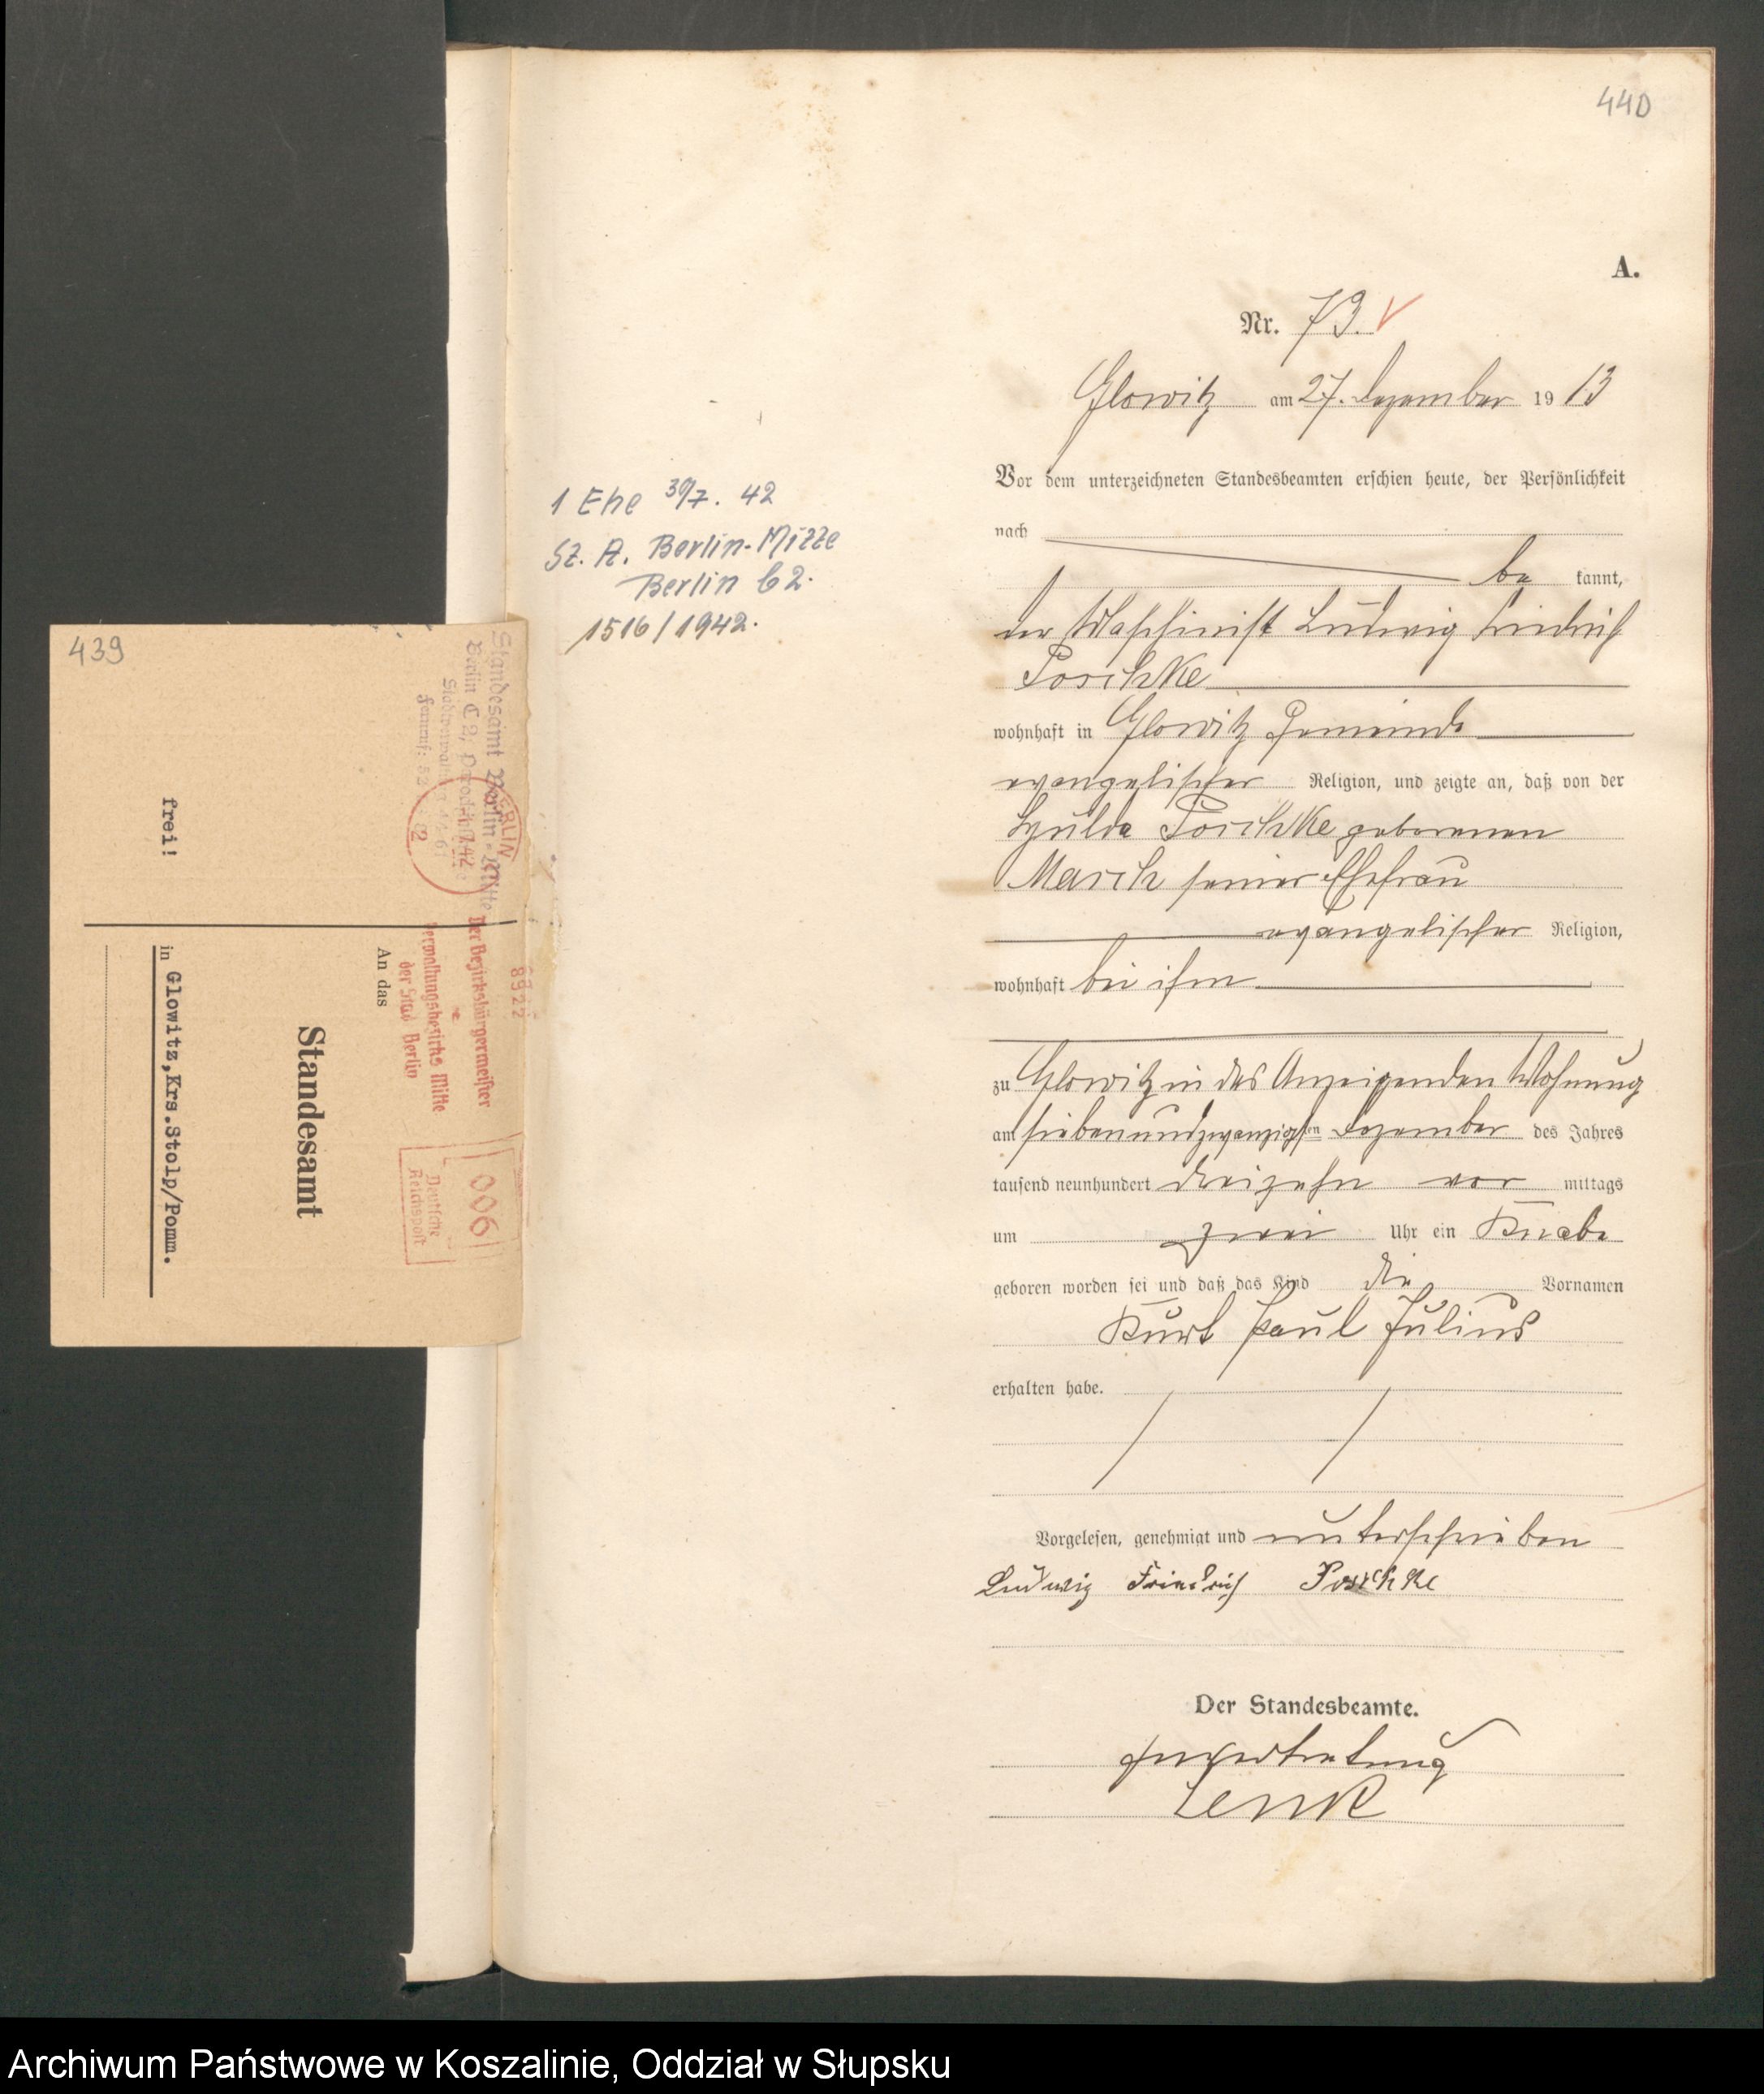 440
A.
Nr. 73.
Glowitz am 27. Dezember 1913
Vor dem unterzeichneten Standesbeamten erschien heute, der Persönlichkeit
nach
be kannt,
der Maschinist Ludwig Friedrich
Poschke
wohnhaft in Glowitz Gemeinde
evangelischer Religion, und zeigte an, daß von der
Hulda Poschke geborenen
Masch seiner Ehefrau
evangelischer Religion,
wohnhaft bei ihm
zu Glowitz in des Anzeigenden Wohnung
am siebenundzwanzigsten Dezember des Jahres
tausend neunhundert dreizehn vor mittags
um zwei Uhr ein Knabe
geboren worden sei und daß das Kind die Vornamen
Kurt Paul Julius
erhalten habe.
Vorgelesen, genehmigt und unterschrieben
Ludwig Friedrich Poschke
Der Standesbeamte.
In Vertretung
Lenk
1 Ehe 30/7. 42
St. A. Berlin-Mitte
Berlin C2.
1516/1942.
439
Standesamt Berlin-Mitte
Berlin C 2,
BERLIN
C2
Der Bezirksbürgermeister
Verwaltungsbezirks Mitte
der Stadt Berlin
8922
006
Deutsche
Reichspost
frei!
An das
Standesamt
in Glowitz,Krs.Stolp/Pomm.
Archiwum Państwowe w Koszalinie, Oddział w Słupsku